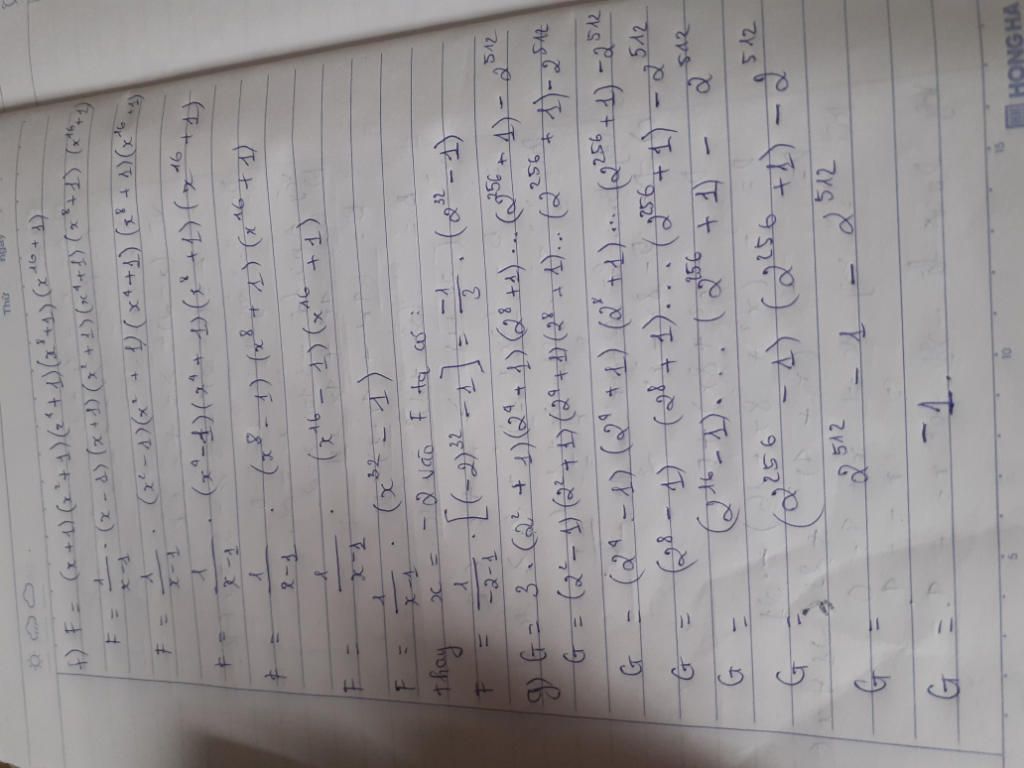 f) F = (x+1)(x²+1)(x⁴+1)(x⁸+1)(x¹⁶+1)
F = 1/x-1 . (x-1)(x+1)(x²+1)(x⁴+1)(x⁸+1)(x¹⁶+1)
F = 1/x-1 . (x²-1)(x²+1)(x⁴+1)(x⁸+1)(x¹⁶+1)
F = 1/x-1 . (x⁴-1)(x⁴+1)(x⁸+1)(x¹⁶+1)
F = 1/x-1 . (x⁸-1)(x⁸+1)(x¹⁶+1)
F = 1/x-1 . (x¹⁶-1)(x¹⁶+1)
F = 1/x-1 . (x³²-1)
thay x = -2 vào F ta có:
F = 1/-2-1 . [(-2)³²-1] = -1/3 . (2³²-1)
g) G = 3.(2²+1)(2⁴+1)(2⁸+1)...(2²⁵⁶+1)-2⁵¹²
G = (2²-1)(2²+1)(2⁴+1)(2⁸+1)..(2²⁵⁶+1)-2⁵¹²
G = (2⁴-1)(2⁴+1)(2⁸+1)...(2²⁵⁶+1)-2⁵¹²
G = (2⁸-1)(2⁸+1)...(2²⁵⁶+1)-2⁵¹²
G = (2¹⁶-1)...(2²⁵⁶+1)-2⁵¹²
G = (2²⁵⁶-1)(2²⁵⁶+1)-2⁵¹²
G = 2⁵¹²-1-2⁵¹²
G = -1.
HONG HA
5 10 15